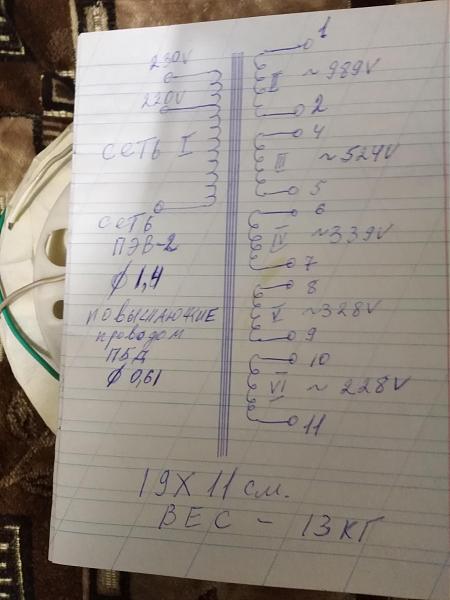 230V
220V
СЕТЬ I
СЕТЬ
ПЭВ-2
φ 1,4
ПОВЫШАЮЩИЕ
проводом
ПБД
φ 0,61
1
II ~989V
2
4
III ~524V
5
6
IV ~339V
7
8
V ~328V
9
10
VI ~228V
11
19 X 11 см.
ВЕС - 13 КГ